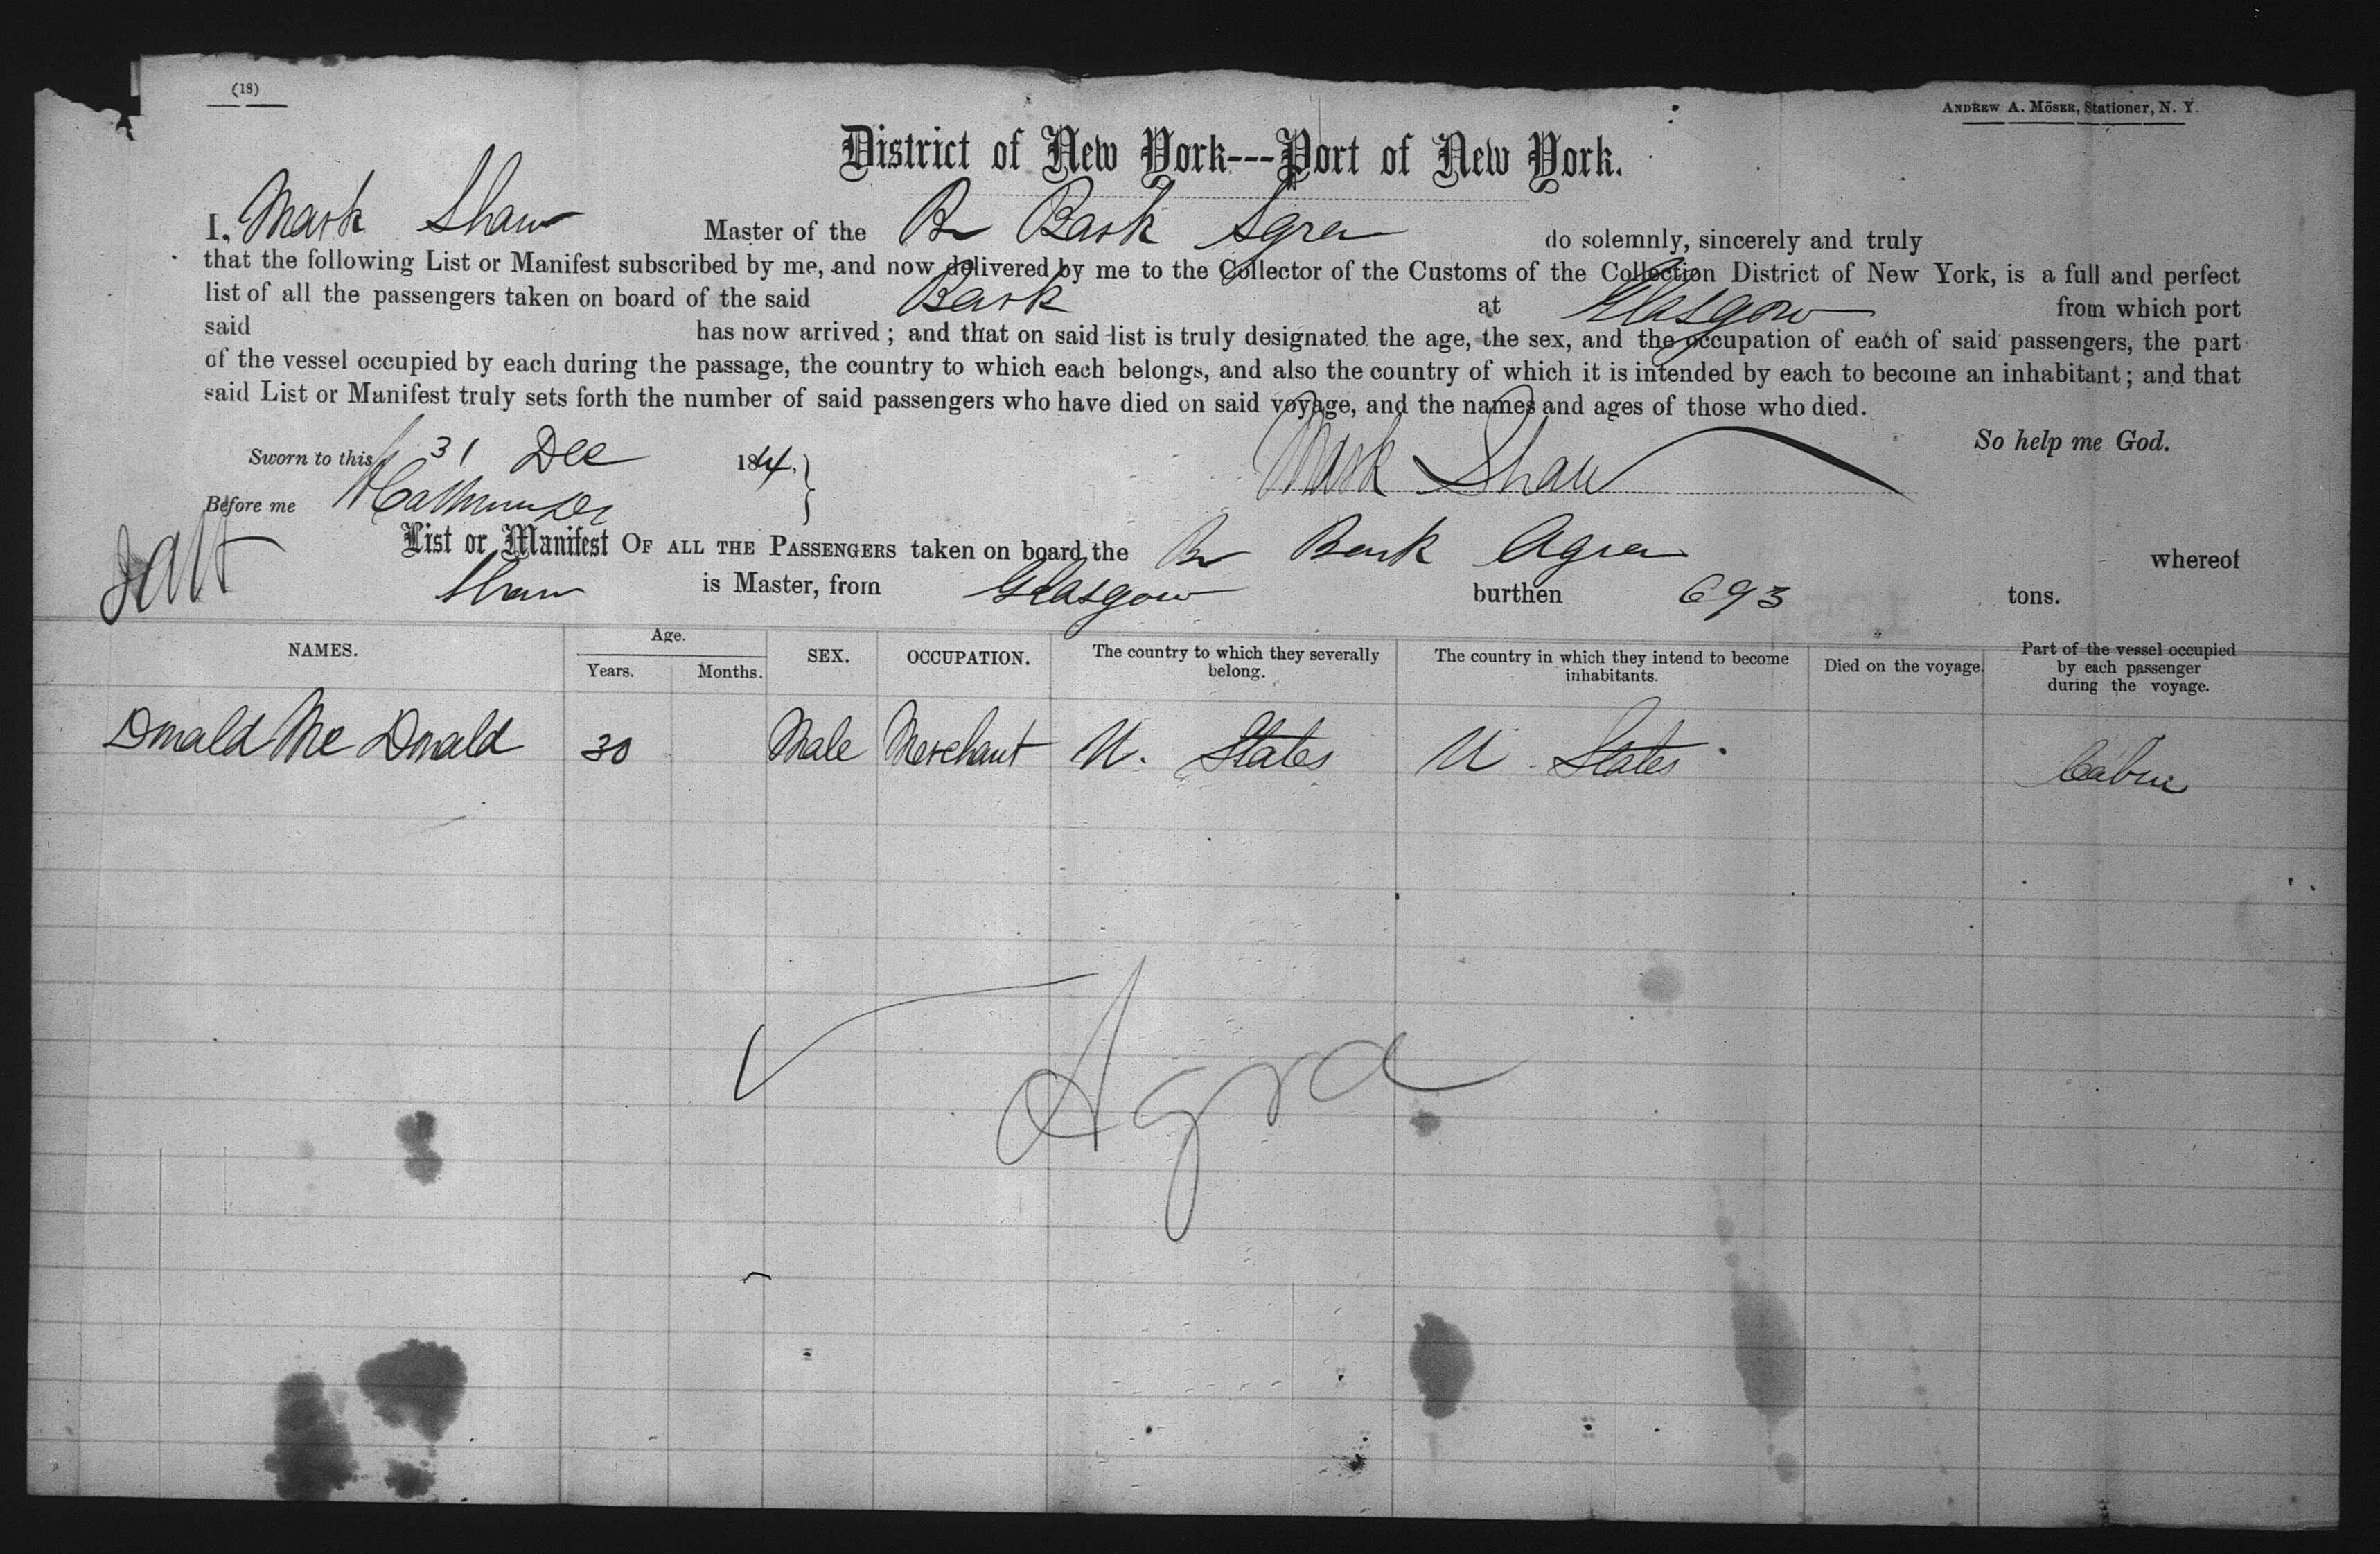 (18)
ANDREW A. MÖSER, Stationer, N. Y.
District of New York---Port of New York.
I, Mark Shaw Master of the Br Bark Agra do solemnly, sincerely and truly
that the following List or Manifest subscribed by me, and now delivered by me to the Collector of the Customs of the Collection District of New York, is a full and perfect
list of all the passengers taken on board of the said Bark at Glasgow from which port
said has now arrived; and that on said list is truly designated the age, the sex, and the occupation of each of said passengers, the part
of the vessel occupied by each during the passage, the country to which each belongs, and also the country of which it is intended by each to become an inhabitant; and that
said List or Manifest truly sets forth the number of said passengers who have died on said voyage, and the names and ages of those who died.
So help me God.
Sworn to this 31 Dec 18
Mark Shaw
Before me
List or Manifest OF ALL THE PASSENGERS taken on board the Br Bark Agra whereof
Shaw is Master, from Glasgow burthen 693 tons.
NAMES. Age. Years. Months. SEX. OCCUPATION. The country to which they severally belong. The country in which they intend to become inhabitants. Died on the voyage. Part of the vessel occupied by each passenger during the voyage.
Donald Mc Donald 30 Male Merchant U. States U. States Cabin
Agra